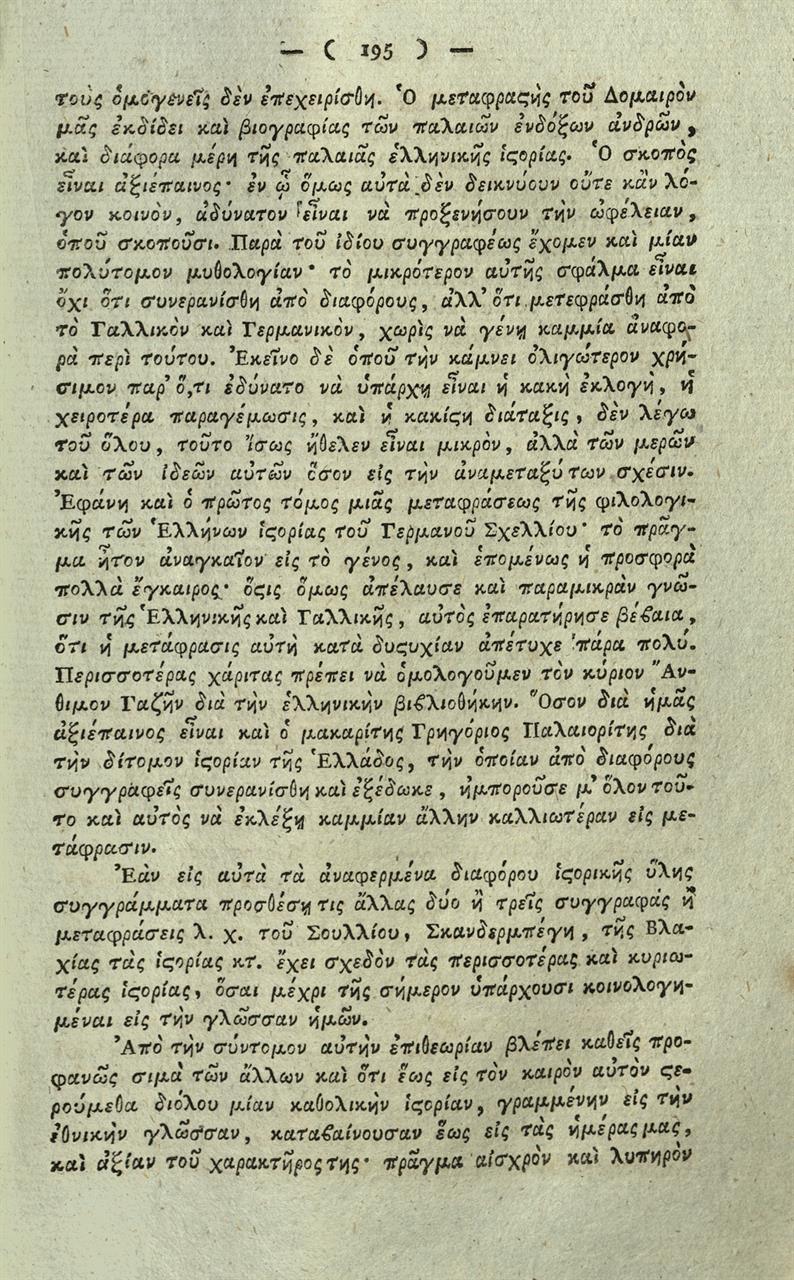 — ( 195 ) —
τοὺς ὁμογενεῖς δὲν ἐπεχειρίσθη. Ὁ μεταφραϛὴς τοῦ Δομαιρὸν
μᾶς ἐκδίδει καὶ βιογραφίας τῶν παλαιῶν ἐνδόξων ἀνδρῶν,
καὶ διάφορα μέρη τῆς παλαιᾶς ἑλληνικῆς ἱϛορίας. Ὁ σκοπὸς
εἶναι ἀξιέπαινος· ἐν ᾧ ὅμως αὐτὰ δὲν δεικνύουν οὔτε κἂν λό-
γον κοινὸν, ἀδύνατον εἶναι νὰ προξενήσουν τὴν ὠφέλειαν,
ὁποῦ σκοποῦσι. Παρὰ τοῦ ἰδίου συγγραφέως ἔχομεν καὶ μίαν
πολύτομον μυθολογίαν· τὸ μικρότερον αὐτῆς σφάλμα εἶναι
ὄχι ὅτι συνερανίσθη ἀπὸ διαφόρους, ἀλλ' ὅτι μετεφράσθη ἀπὸ
τὸ Γαλλικὸν καὶ Γερμανικὸν, χωρὶς νὰ γένῃ καμμία ἀναφο-
ρὰ περὶ τούτου. Ἐκεῖνο δὲ ὁποῦ τὴν κάμνει ὀλιγώτερον χρή-
σιμον παρ' ὅ,τι ἐδύνατο νὰ ὑπάρχῃ εἶναι ἡ κακὴ ἐκλογὴ, ἡ
χειροτέρα παραγέμωσις, καὶ ἡ κακίϛη διάταξις, δὲν λέγω
τοῦ ὅλου, τοῦτο ἴσως ἤθελεν εἶναι μικρὸν, ἀλλὰ τῶν μερῶν
καὶ τῶν ἰδεῶν αὐτῶν ὅσον εἰς τὴν ἀναμεταξύ των σχέσιν.
Ἐφάνη καὶ ὁ πρῶτος τόμος μιᾶς μεταφράσεως τῆς φιλολογι-
κῆς τῶν Ἑλλήνων ἱϛορίας τοῦ Γερμανοῦ Σχελλίου· τὸ πρᾶγ-
μα ἦτον ἀναγκαῖον εἰς τὸ γένος, καὶ ἑπομένως ἡ προσφορὰ
πολλὰ ἔγκαιρος· ὅϛις ὅμως ἀπέλαυσε καὶ παραμικρὰν γνῶ-
σιν τῆς Ἑλληνικῆς καὶ Γαλλικῆς, αὐτὸς ἐπαρατήρησε βέβαια,
ὅτι ἡ μετάφρασις αὐτὴ κατὰ δυϛυχίαν ἀπέτυχε πάρα πολύ.
Περισσοτέρας χάριτας πρέπει νὰ ὁμολογοῦμεν τὸν κύριον Ἄν-
θιμον Γαζῆν διὰ τὴν ἑλληνικὴν βιβλιοθήκην. Ὅσον διὰ ἡμᾶς
ἀξιέπαινος εἶναι καὶ ὁ μακαρίτης Γρηγόριος Παλαιορίτης διὰ
τὴν δίτομον ἱϛορίαν τῆς Ἑλλάδος, τὴν ὁποίαν ἀπὸ διαφόρους
συγγραφεῖς συνερανίσθη καὶ ἐξέδωκε, ἠμποροῦσε μ' ὅλον τοῦ-
το καὶ αὐτὸς νὰ ἐκλέξῃ καμμίαν ἄλλην καλλιωτέραν εἰς με-
τάφρασιν.
Ἐὰν εἰς αὐτὰ τὰ ἀναφερμένα διαφόρου ἱϛορικῆς ὕλης
συγγράμματα προσθέσῃ τις ἄλλας δύο ἢ τρεῖς συγγραφὰς ἢ
μεταφράσεις λ. χ. τοῦ Σουλλίου, Σκανδερμπέγη, τῆς Βλα-
χίας τὰς ἱϛορίας κτ. ἔχει σχεδὸν τὰς περισσοτέρας καὶ κυριω-
τέρας ἱϛορίας, ὅσαι μέχρι τῆς σήμερον ὑπάρχουσι κοινολογη-
μέναι εἰς τὴν γλῶσσαν ἡμῶν.
Ἀπὸ τὴν σύντομον αὐτὴν ἐπιθεωρίαν βλέπει καθεῖς προ-
φανῶς σιμὰ τῶν ἄλλων καὶ ὅτι ἕως εἰς τὸν καιρὸν αὐτὸν ϛε-
ρούμεθα διόλου μίαν καθολικὴν ἱϛορίαν, γραμμένην εἰς τὴν
ἐθνικὴν γλῶσσαν, καταβαίνουσαν ἕως εἰς τὰς ἡμέρας μας,
καὶ ἀξίαν τοῦ χαρακτῆρος της· πρᾶγμα αἰσχρὸν καὶ λυπηρὸν